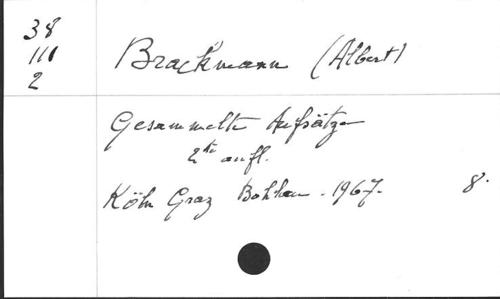 38
III
2
Brackmann (Albert)
Gesammelte Aufsätze
2te aufl.
Köln Graz Bohlau - 1967. 8.